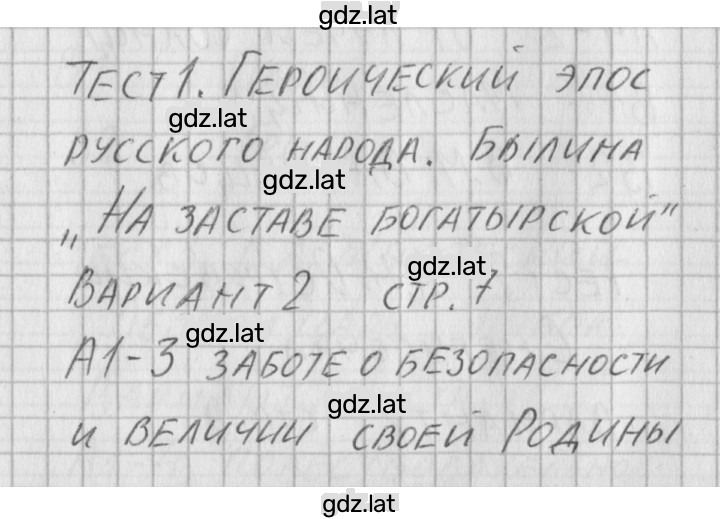 gdz.lat
Тест 1. Героический эпос
gdz.lat
русского народа. Былина
gdz.lat
„На заставе богатырской"
gdz.lat
Вариант 2 стр. 7
gdz.lat
А1-3 заботе о безопасности
gdz.lat
и величии своей Родины
gdz.lat